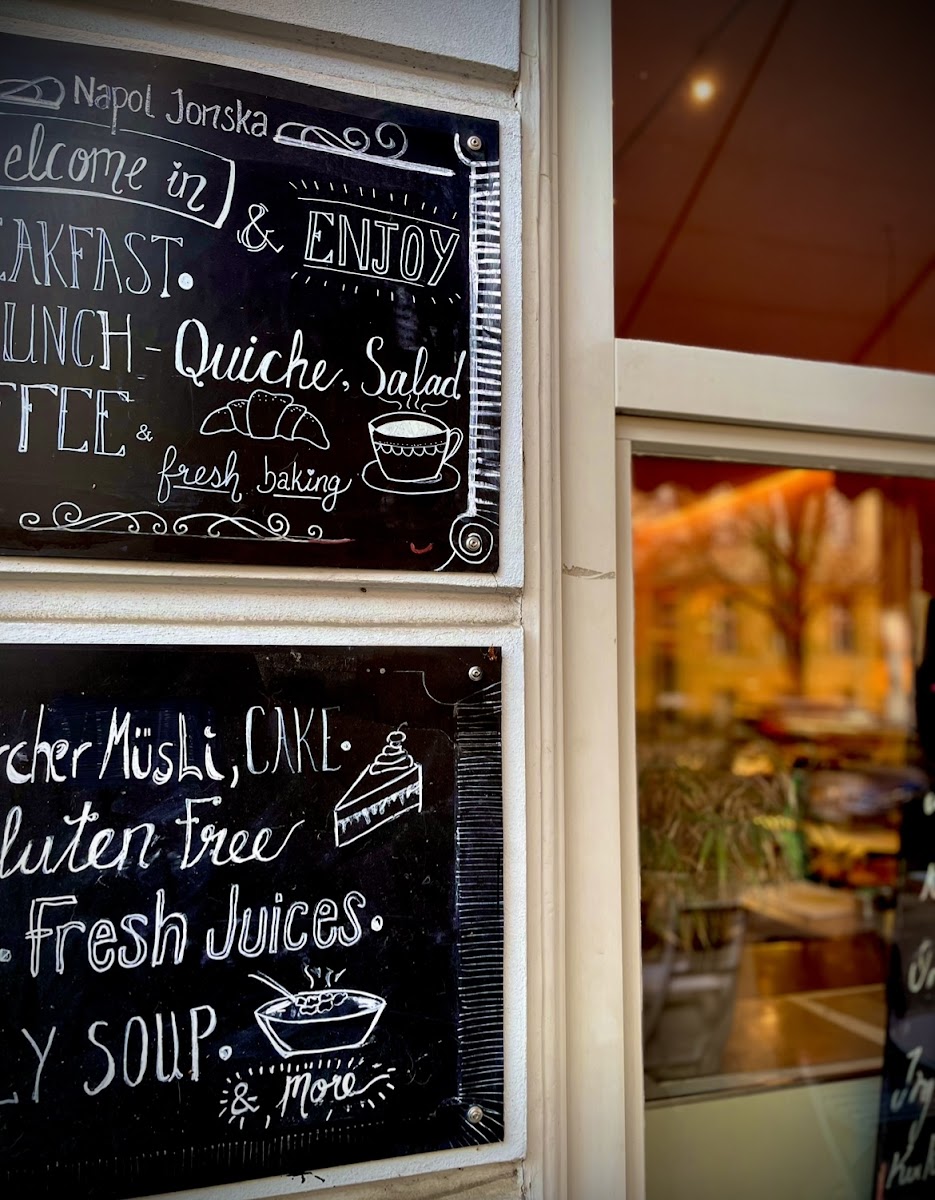 Napol Jonska
elcome in
& ENJOY
EAKFAST.
UNCH - Quiche, Salad
FFEE &
fresh baking
rcher Müsli, CAKE.
luten Free
. Fresh Juices.
LY SOUP.
& More